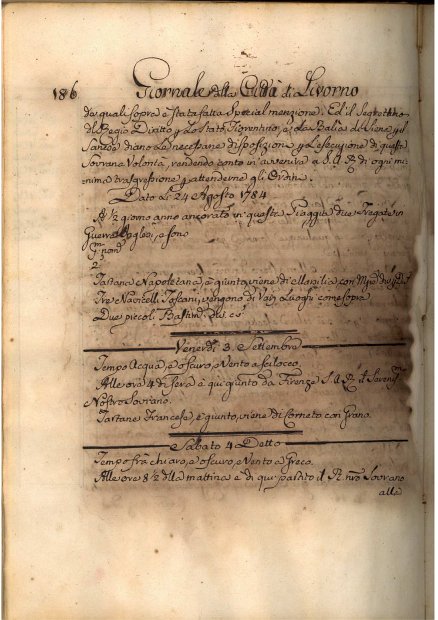 186 Giornale della Città di Livorno
da quali sopra è stata fatta Special menzione. Ed il Segretario
del Regio Diritto p. lo Stato Fiorentino, e La Balìa di Siena p. il
Sanese diano Le necessarie disposizioni p. L'esecuzione di questa
Sovrana Volontà, rendendo conto in avvenire a S.A.R. di ogni mi-
nima trasgressione p. attenderne gli Ordini.
Dato Li 24 Agosto 1784
A ½ giorno anno ancorato in questa Spiaggia due Fregate in
Guerra Inglesi, e sono
2.
Tartana Napoletana, è giunta, viene di Marsilia con
Tre Navicelli Toscani, vengono di Varj Luoghi come sopra
Due piccoli Bastim.ti
Venerdì 3. Settembre
Tempo Acqua, e oscuro, e Vento a Scilocco.
Alle ore 4 di Sera è qui giunto da Firenze S.A.R. il Seren.mo
Nostro Sovrano.
Tartana Francese, è giunto, viene di Corneto con Grano.
Sabato 4 Detto
Tempo frà chiaro, e oscuro, e Vento a Greco.
Alle ore 8 ½ della mattina e di qui partito il R. nro Sovrano
alla